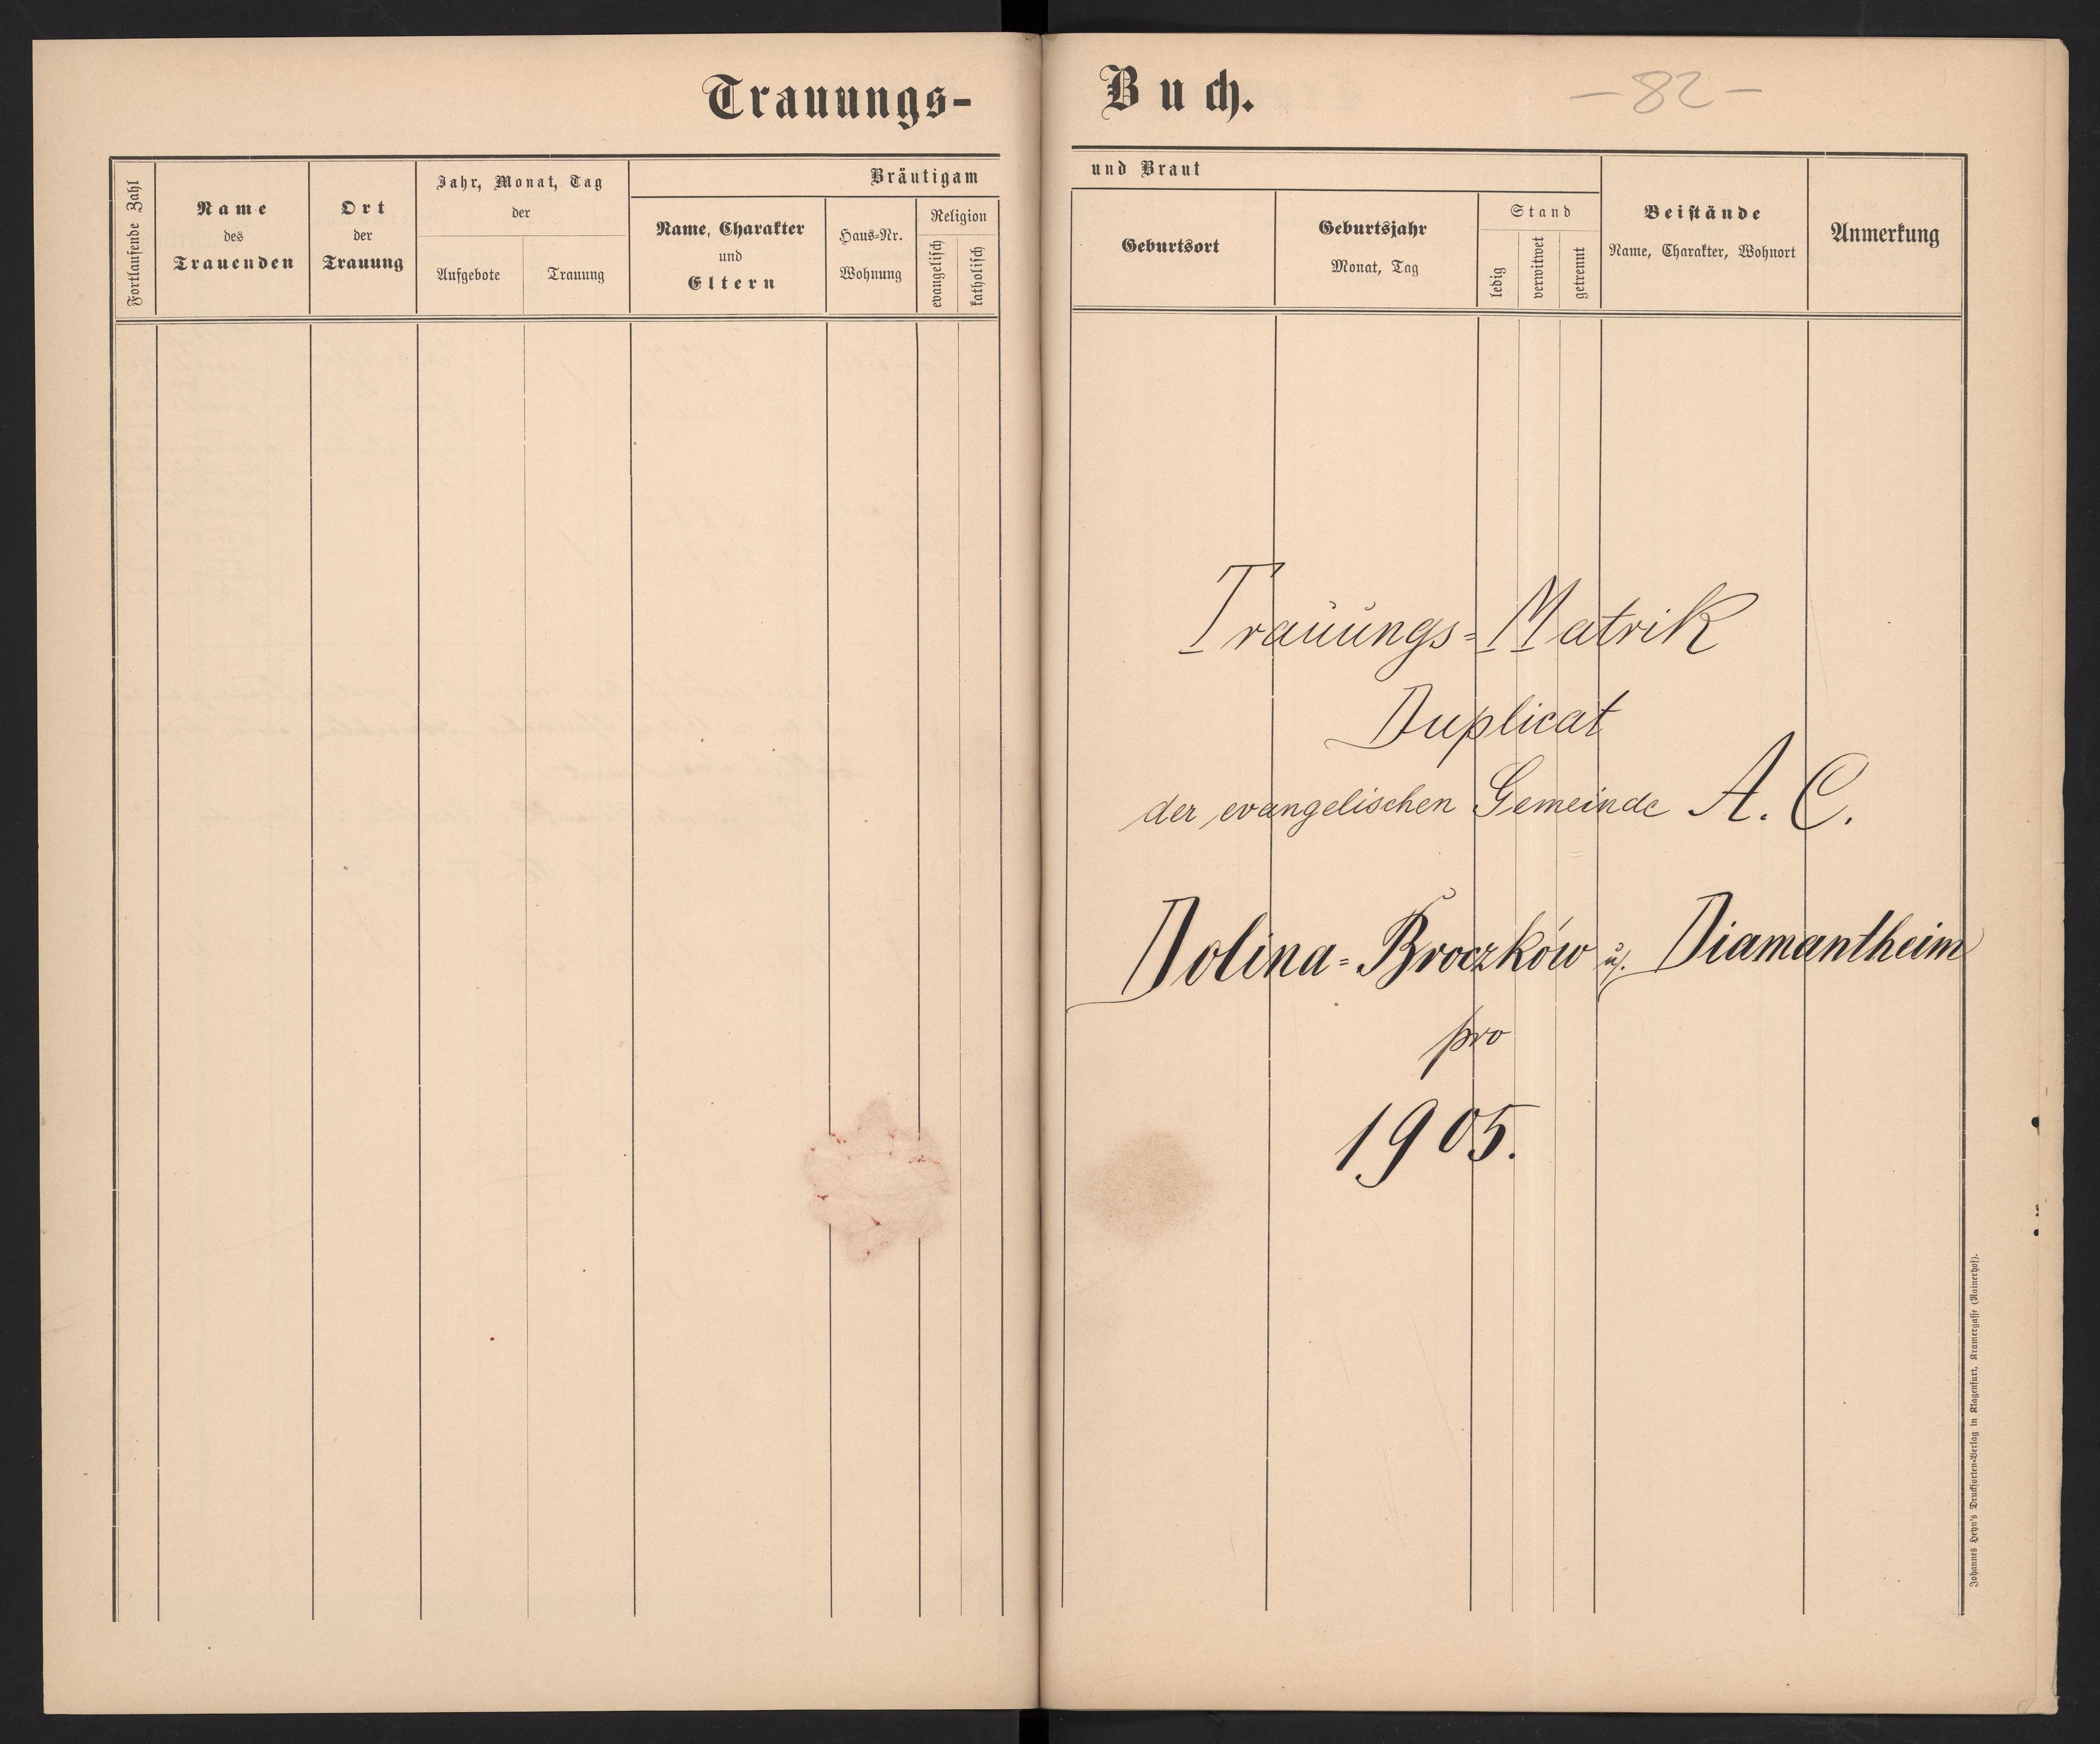 Trauungs-Buch.
-82-
Fortlaufende Zahl
Name
des
Trauenden
Ort
der
Trauung
Jahr, Monat, Tag
der
Aufgebote
Trauung
Bräutigam
Name, Charakter
und
Eltern
Haus-Nr.
Wohnung
Religion
evangelisch
katholisch
und Braut
Geburtsort
Geburtsjahr
Monat, Tag
Stand
ledig
verwitwet
getrennt
Beistände
Name, Charakter, Wohnort
Anmerkung
Trauungs=Matrik
Duplicat
der evangelischen Gemeinde A. C.
Dolina=Broczków u. Diamantheim
pro
1905.
Johannes Heyn's Drucksorten-Verlag in Klagenfurt, Kramergasse (Rainerhof).